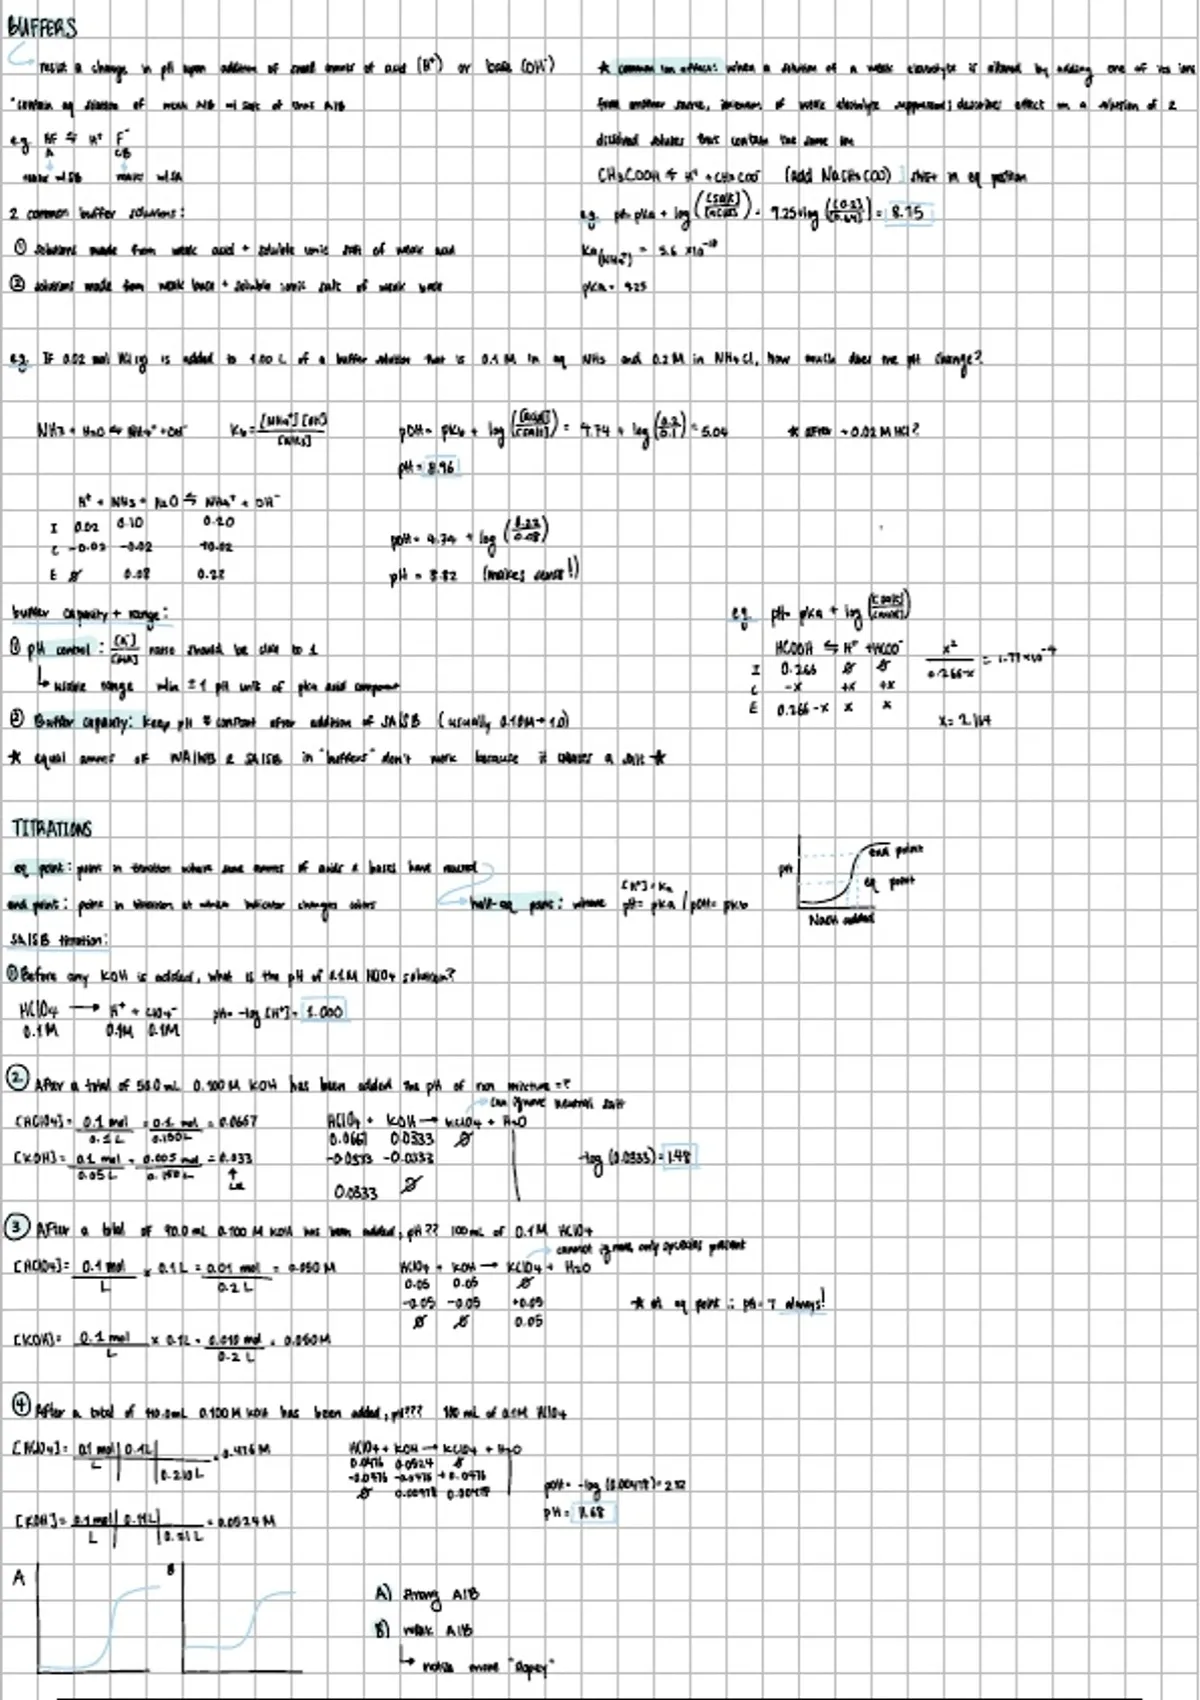 BUFFERS
resist a change in pH upon addition of small amounts of acid (H⁺) or base (OH⁻)
*contain aq solution of weak A/B w/ salt of that A/B
e.g. HF ⇌ H⁺ F⁻
A CB
2 common buffer solutions:
① solutions made from weak acid + soluble ionic salt of weak acid
② solutions made from weak base + soluble ionic salt of weak base
* common ion effect: when a solution of a weak electrolyte is altered by adding one of its ions
from another source, ionization of weak electrolyte suppressed; describes effect on a solution of 2
dissolved solutes that contain the same ion
CH3COOH ⇌ H⁺ + CH3COO⁻ (add NaCH3COO) shift in eq position
e.g. pH = pKa + log([salt]/[acid]) = 9.25 + log = 8.75
Ka(NH4⁺) = 5.6 x10⁻¹⁰
pKa = 9.25
e.g. If 0.02 mol HCl (g) is added to 1.00 L of a buffer solution that is 0.1 M in aq NH3 and 0.2 M in NH4Cl, how much does the pH change?
NH3 + H2O ⇌ NH4⁺ + OH⁻ Kb = [NH4⁺][OH⁻]/[NH3] pOH = pKb + log([acid]/[base]) = 4.74 + log(0.2/0.1) = 5.04 * after + 0.02 M HCl?
pH = 8.96
H⁺ + NH3 + H2O ⇌ NH4⁺ + OH⁻
I 0.02 0.10 0.20
C -0.02 -0.02 +0.02
E ∅ 0.08 0.22
pOH = 4.74 + log(0.22/0.08)
pH = 8.82 (makes sense!)
buffer capacity + range:
① pH control: [A⁻]/[HA] ratio should be close to 1
usable range w/in ±1 pH unit of pKa acid component
② Buffer capacity: keep pH ≈ constant after addition of SA/SB (usually 0.10M → 1.0)
* equal amnts of WA/WB & SA/SB in "buffers" don't work because it creates a salt *
e.g. pH = pKa + log
HCOOH ⇌ H⁺ + HCOO⁻
I 0.266 ∅ ∅
C -x +x +x
E 0.266-x x x
x²/0.266-x = 1.77x10⁻⁴
TITRATIONS
eq point: point in titration where same amnts of acids & bases have reacted
end point: point in titration at when indicator changes colors
half-eq point: where [H⁺] = Ka
pH = pKa / pOH = pKb
pH
end point
eq point
NaOH added
SA/SB titration:
① Before any KOH is added, what is the pH of 0.1M HClO4 solution?
HClO4 → H⁺ + ClO4⁻ pH = -log [H⁺] = 1.000
0.1M 0.1M 0.1M
② After a total of 50.0 mL 0.100 M KOH has been added the pH of rxn mixture = ?
can ignore neutral salt
[HClO4] = 0.1 mol/0.1 L = 0.1 mol/0.150L = 0.0667
[KOH] = 0.1 mol/0.05 L = 0.005 mol/0.150 L = 0.033
LR
HClO4 + KOH → KClO4 + H2O
0.0667 0.0333 ∅
-0.0333 -0.0333
0.0333 ∅
-log (0.0333) = 1.48
③ After a total of 90.0 mL 0.100 M KOH has been added, pH?? 100 mL of 0.1M HClO4
cannot ignore, only species present
[HClO4] = 0.1 mol/L x 0.1 L = 0.01 mol/0.2 L = 0.050 M
HClO4 + KOH → KClO4 + H2O
0.05 0.05 ∅
-0.05 -0.05 +0.05
∅ ∅ 0.05
* at eq point ∴ pH = 7 always!
[KOH] = 0.1 mol/L x 0.1L = 0.010 mol/0.2 L = 0.050M
④ After a total of 110.0mL 0.100 M KOH has been added, pH??? 100 mL of 0.1M HClO4
[HClO4] = 0.1 mol 0.1L / L 0.210 L = 0.476 M
HClO4 + KOH → KClO4 + H2O
0.0476 0.0524 ∅
-0.0476 -0.0476 +0.0476
∅ 0.00478 0.00478
pOH = -log (0.00478) = 2.32
pH = 11.68
[KOH] = 0.1 mol 0.11L / L 0.21 L = 0.0524 M
A
B
A) strong A/B
B) weak A/B
notice more "slopey"